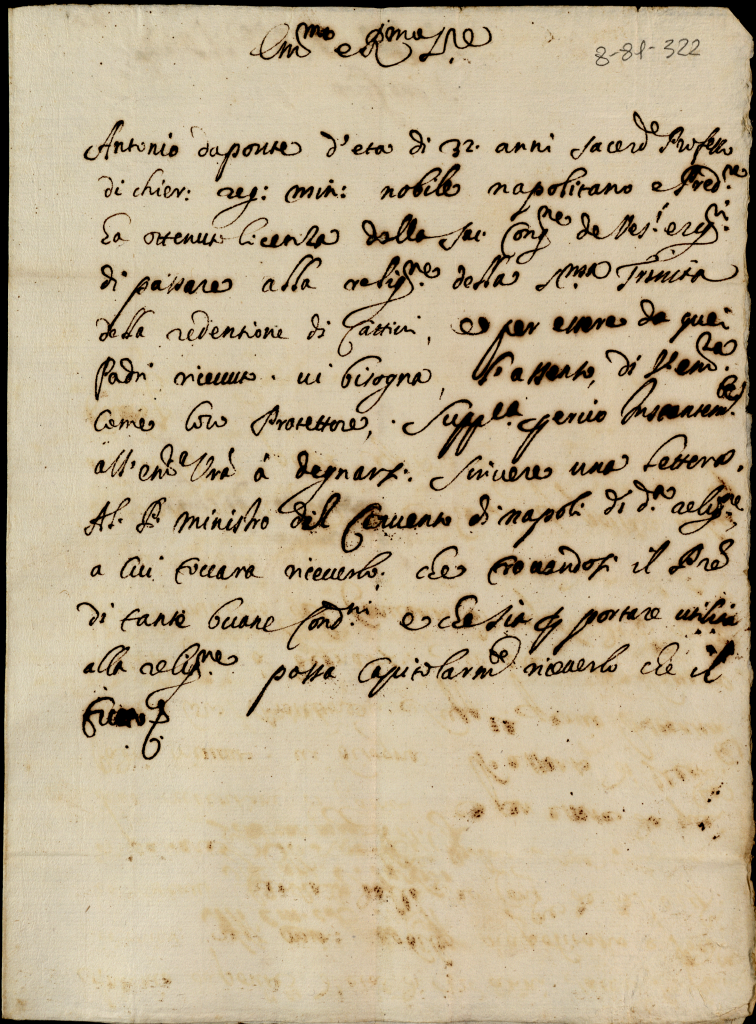 Em^mo e R^mo Sig^re
8-81-322
Antonio daponte d'eta di 32. anni sacerd^e Professo
di chier: reg: min: nobile napolitano e Pred^re
ha ottenut licenza della Sac. Cong^ne de Ves.^i e reg^ri
di passare alla relig^ne della S^ma Trinita
della redentione di Cattivi, e per essere da quei
Padri ricevut. vi bisogna, l'assento, di V. em^za
come loro Protettore, supp^ca perciò instantem^te
all'em^e Vra à degnarsi. scrivere una lettera.
Al. P. ministro del Convento di napoli di d^a relig^ne
a cui toccara riceverlo. che trovandosi il Pre
di tante buone Cond^ni e che sia p portare utilita
alla relig^ne possa Capitolarm^te riceverlo che il
tutto